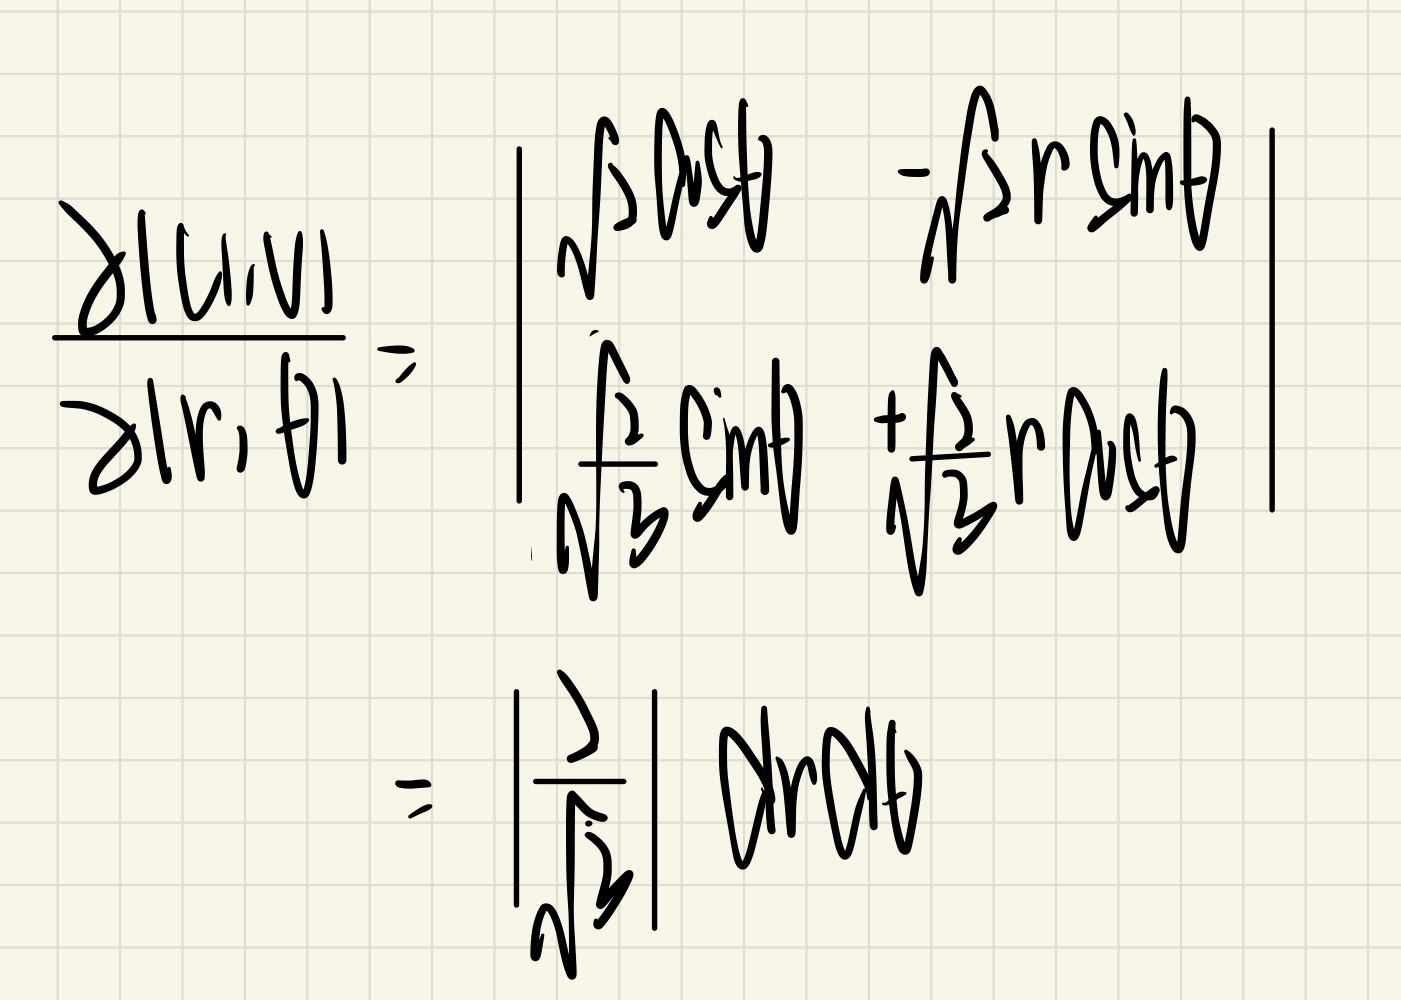 ∂(u,v)/∂(r,θ) = | √2 cosθ   -√2 r sinθ |
| √(2/3) sinθ   +√(2/3) r cosθ |
= | 2/√3 | drdθ